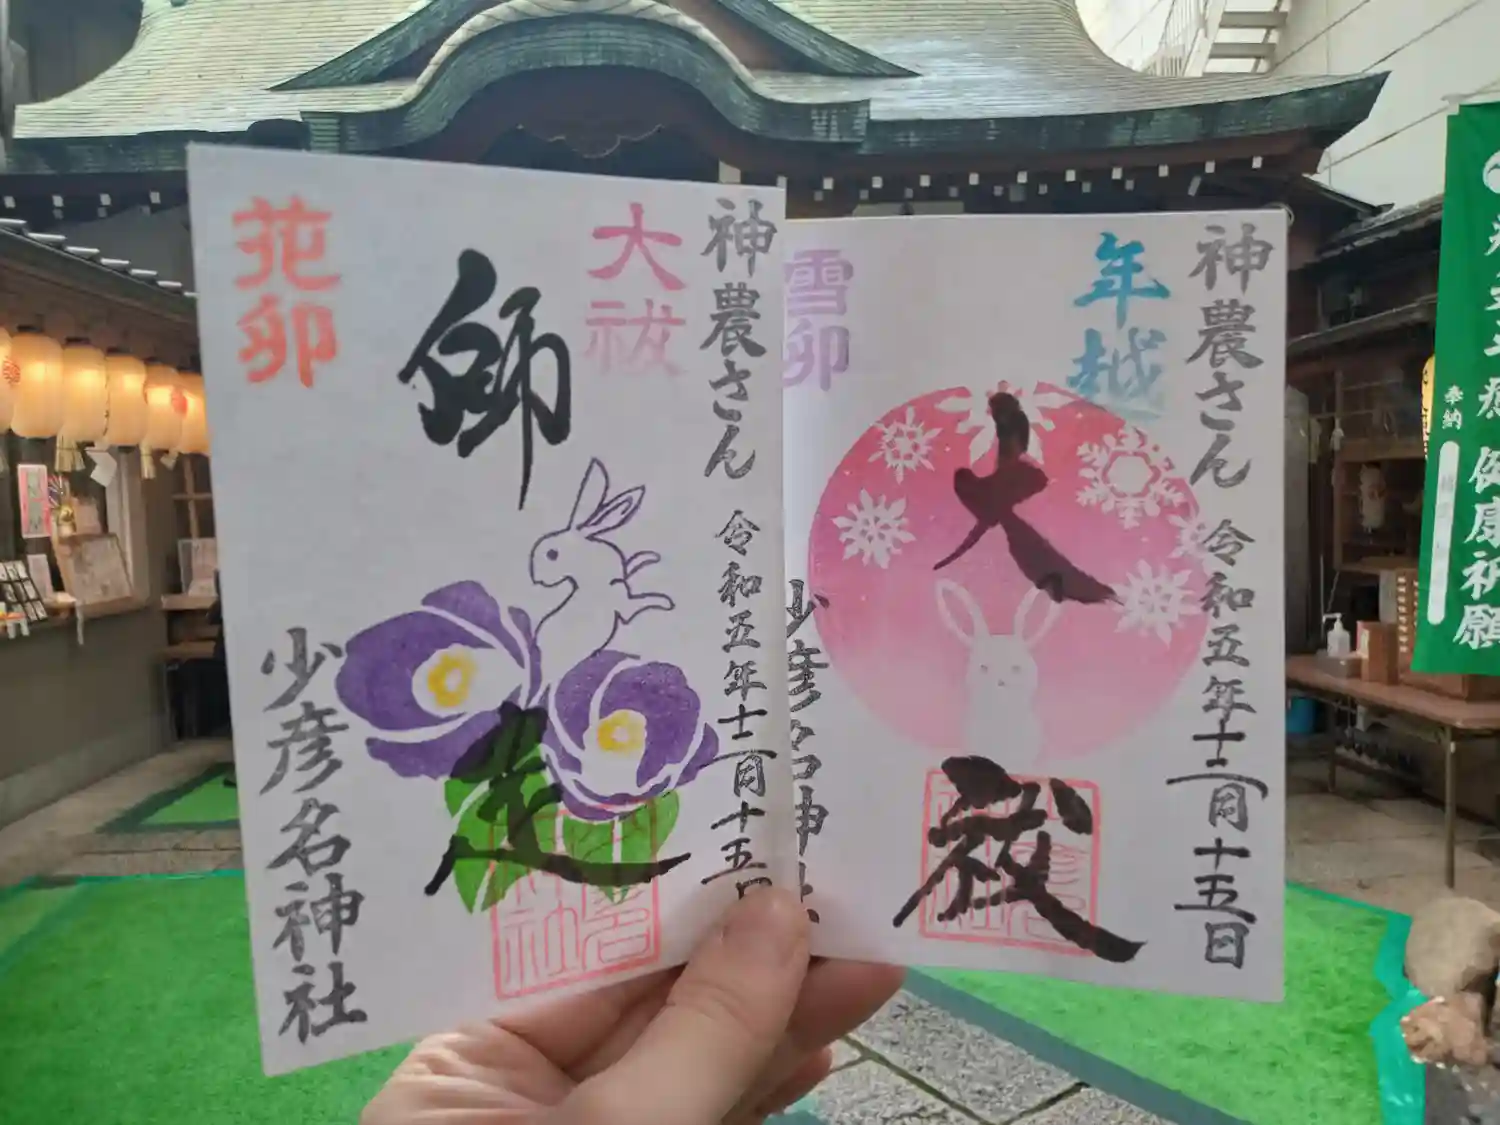 神農さん 令和五年十二月十五日
大祓
師走
花卯
少彦名神社
神農さん 令和五年十二月十五日
年越
大祓
雪卯
少彦名神社
健康祈願
奉納